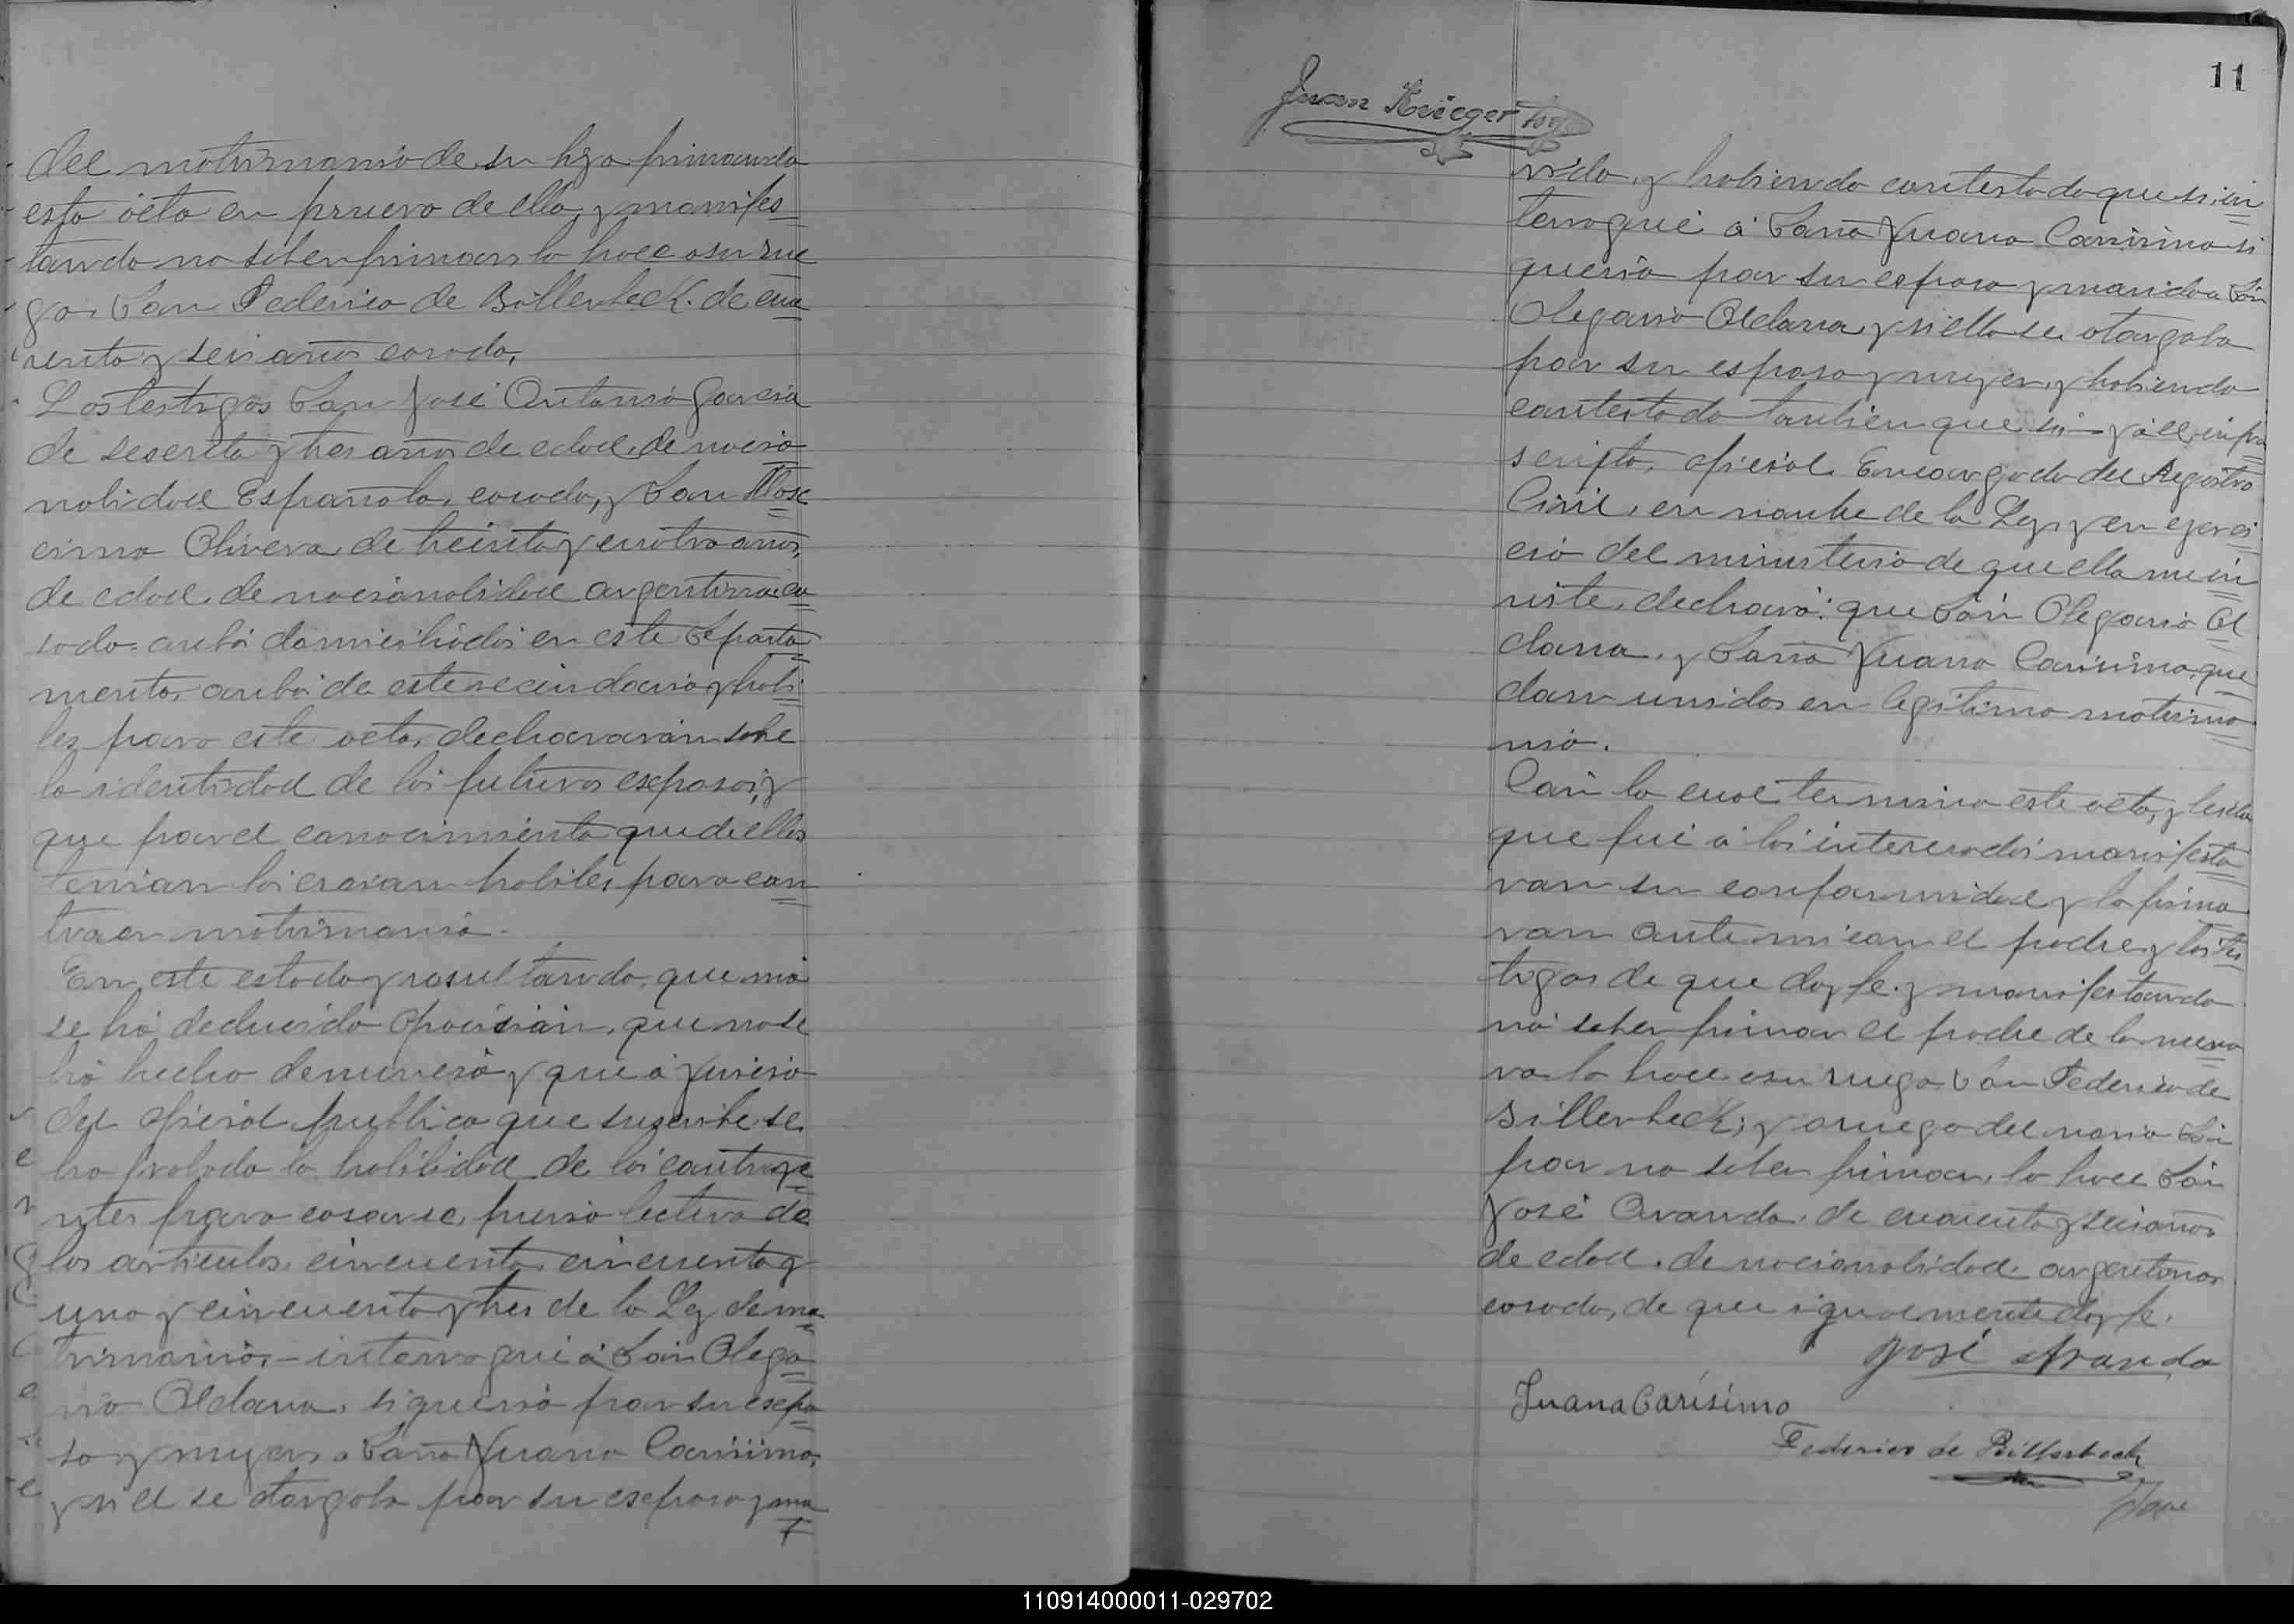 del matrimonio de su hija firmando
esta acta en prueva de ello, y manifes
tando no saber firmar lo hace a su rue
go Don Federico de Billerbeck de cua
renta y seis años casado,
Los testigos Don José Antonio Garcia
de sesenta y tres años de edad, de nacio
nalidad Española, casado, y Don
cimo Olivera de treinta y cuatro años,
de edad, de nacionalidad argentina ca
sado ambos domiciliados en este Departa
mento, ambos de este vecindario y habi
les para este acto, declararan sobre
la identidad de los futuros esposos, y
que por el conocimiento que de ellos
tenian los creian habiles para con
traer matrimonio.
En este estado y resultando, que no
se há deducido oposicion, que no se
há hecho denuncia y que á juicio
del oficial publico que suscribe, se
ha probado la habilidad de los contraye
ntes para casarse, previa lectura de
los articulos, cincuenta, cincuenta y
uno y cincuenta y tres de la Ley de ma
trimonio, - interrogué á Don Olega
rio Aldana, si queria por su espo
sa y mujer, a Doña Juana Carisimo,
y si el se otorgaba por su esposo y ma
11
Juan Krieger
rido, y habiendo contestado que si, in
terrogué á Doña Juana Carisimo si
queria por su esposo y marido a Don
Olegario Aldana y si ella se otorgaba
por su esposa y mujer, y habiendo
contestado tambien que si - y o el infra
scripto, oficial Encargado del Registro
Civil, en nombre de la Ley y en ejerci
cio del ministerio de que ella me in
viste, declaro: que Don Olegario Al
dana, y Doña Juana Carisimo, que
dan unidos en legitimo matrimo
nio.
Con lo cual termino este acto, y leida
que fué á los interesados manifesta
ran su conformidad y la firma
ran ante mi con el padre y los tes
tigos de que doy fe, y manifestando
no saber firmar el padre de la
lo hace a su ruego Don Federico de
Billerbeck; y a ruego del novio Don
por no saber firmar, lo hace Don
José Aranda, de cuarenta y seis años
de edad, de nacionalidad argentino,
casado, de que igualmente doy fe.
José Aranda
Juana Carísimo
Federico de Billerbeck
110914000011-029702